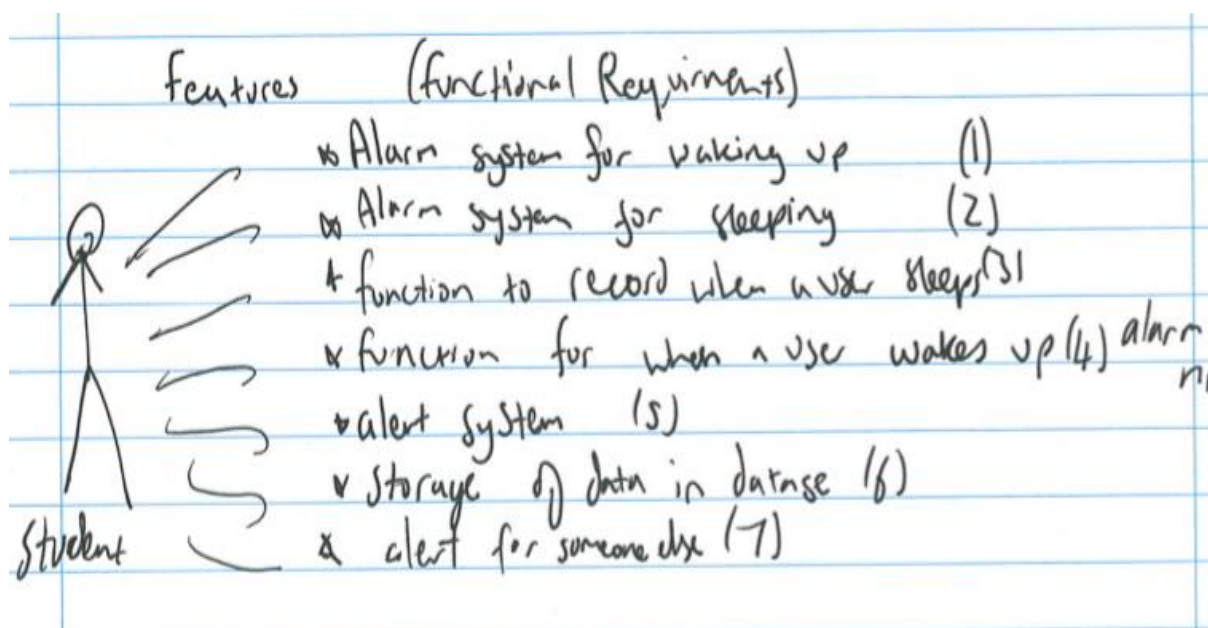 features (functional Requirnents)
* Alarm system for waking up (1)
* Alarm system for sleeping (2)
* function to record when a user sleeps (3)
* function for when a user wakes up (4) alarm
* alert system (5)
* Storage of data in datnse (6)
Student * alert for someone else (7)